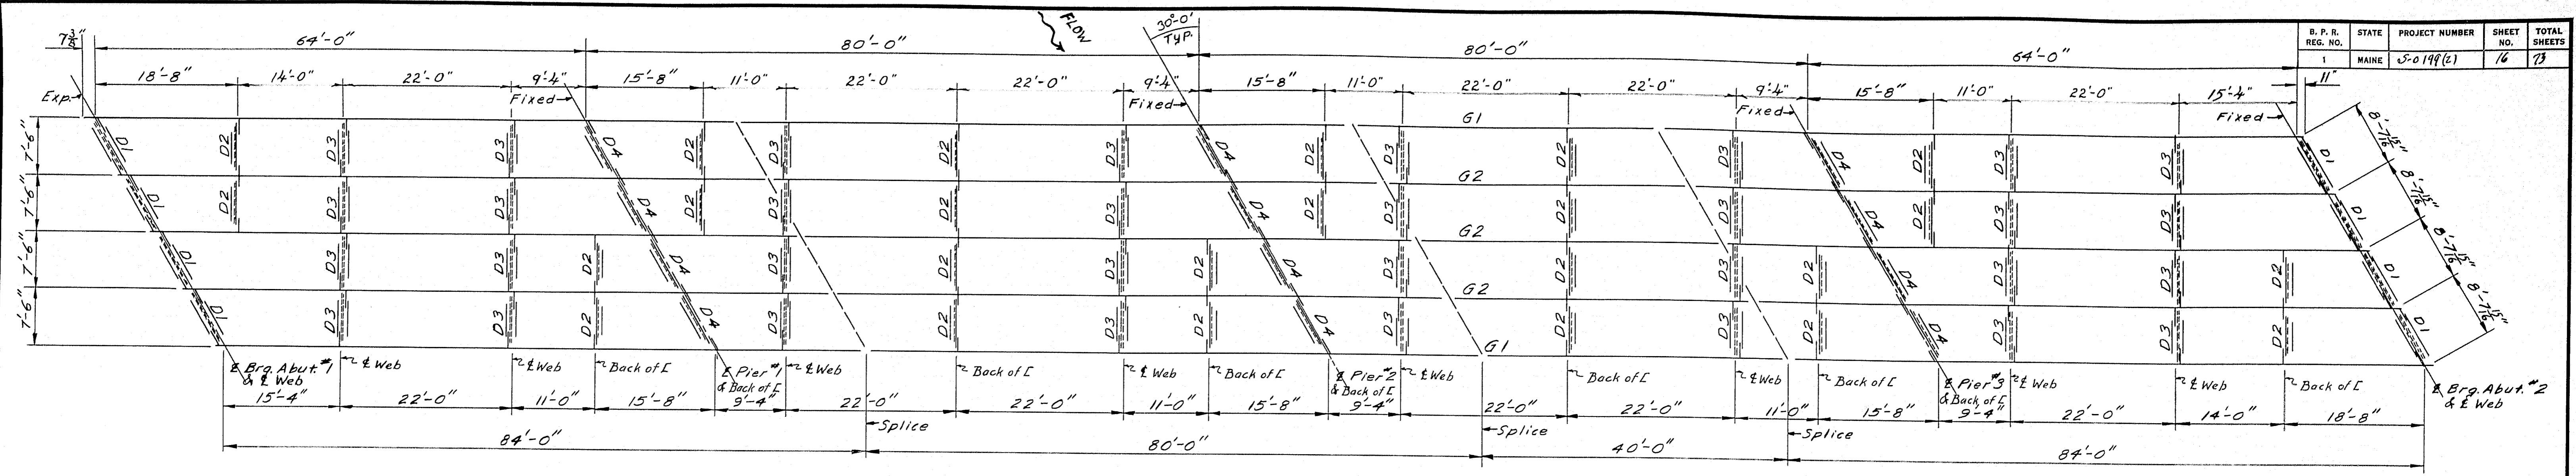 B. P. R. REG. NO. STATE PROJECT NUMBER SHEET NO. TOTAL SHEETS
1 MAINE S-0199(2) 16 73
FLOW
30°-0' TYP.
7 3/8" 64'-0" 80'-0" 80'-0" 64'-0"
18'-8" 14'-0" 22'-0" 9'-4" 15'-8" 11'-0" 22'-0" 22'-0" 9'-4" 15'-8" 11'-0" 22'-0" 22'-0" 9'-4" 15'-8" 11'-0" 22'-0" 15'-4" 11"
Exp. Fixed Fixed Fixed Fixed
G1
7'-6" D1 D2 D3 D3 D4 D2 D3 D2 D3 D4 D2 D3 D2 D3 D4 D2 D3 D3 D1 8'-7 15/16"
G2
7'-6" D1 D2 D3 D3 D4 D2 D3 D2 D3 D4 D2 D3 D2 D3 D4 D2 D3 D3 D1 8'-7 15/16"
G2
7'-6" D1 D3 D3 D2 D4 D3 D2 D3 D2 D4 D3 D2 D3 D2 D4 D3 D3 D2 D1 8'-7 15/16"
G2
7'-6" D1 D3 D3 D2 D4 D3 D2 D3 D2 D4 D3 D2 D3 D2 D4 D3 D3 D2 D1 8'-7 15/16"
G1
℄ Brg. Abut. #1 & ℄ Web
℄ Web
℄ Web
Back of [
℄ Pier #1 & Back of [
℄ Web
Back of [
℄ Web
Back of [
℄ Pier #2 & Back of [
℄ Web
Back of [
℄ Web
Back of [
℄ Pier #3 & Back of [
℄ Web
℄ Web
Back of [
℄ Brg. Abut. #2 & ℄ Web
15'-4" 22'-0" 11'-0" 15'-8" 9'-4" 22'-0" 22'-0" 11'-0" 15'-8" 9'-4" 22'-0" 22'-0" 11'-0" 15'-8" 9'-4" 22'-0" 14'-0" 18'-8"
Splice Splice Splice
84'-0" 80'-0" 40'-0" 84'-0"